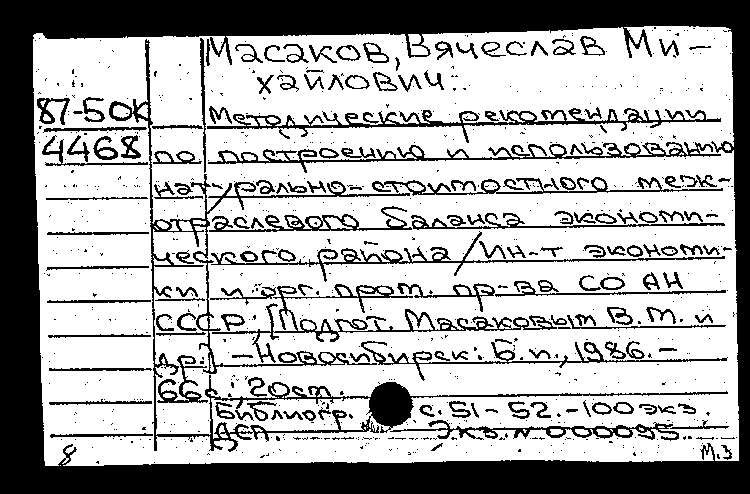 Масаков, Вячеслав Ми-
хайлович.
87-50к Методические рекомендации
4468 по построению и использованию
натурально-стоимостного меж-
отраслевого баланса экономи-
ческого района/Ин-т экономи-
ки и орг. пром. пр-ва СО АН
СССР; [Подгот. Масаковым В.М. и
др.] – Новосибирск: Б.и., 1986. –
66 с.; 20 см.
Библиогр. с. 51-52. – 100 экз.
Деп. Экз. № 000095.
8 М.З